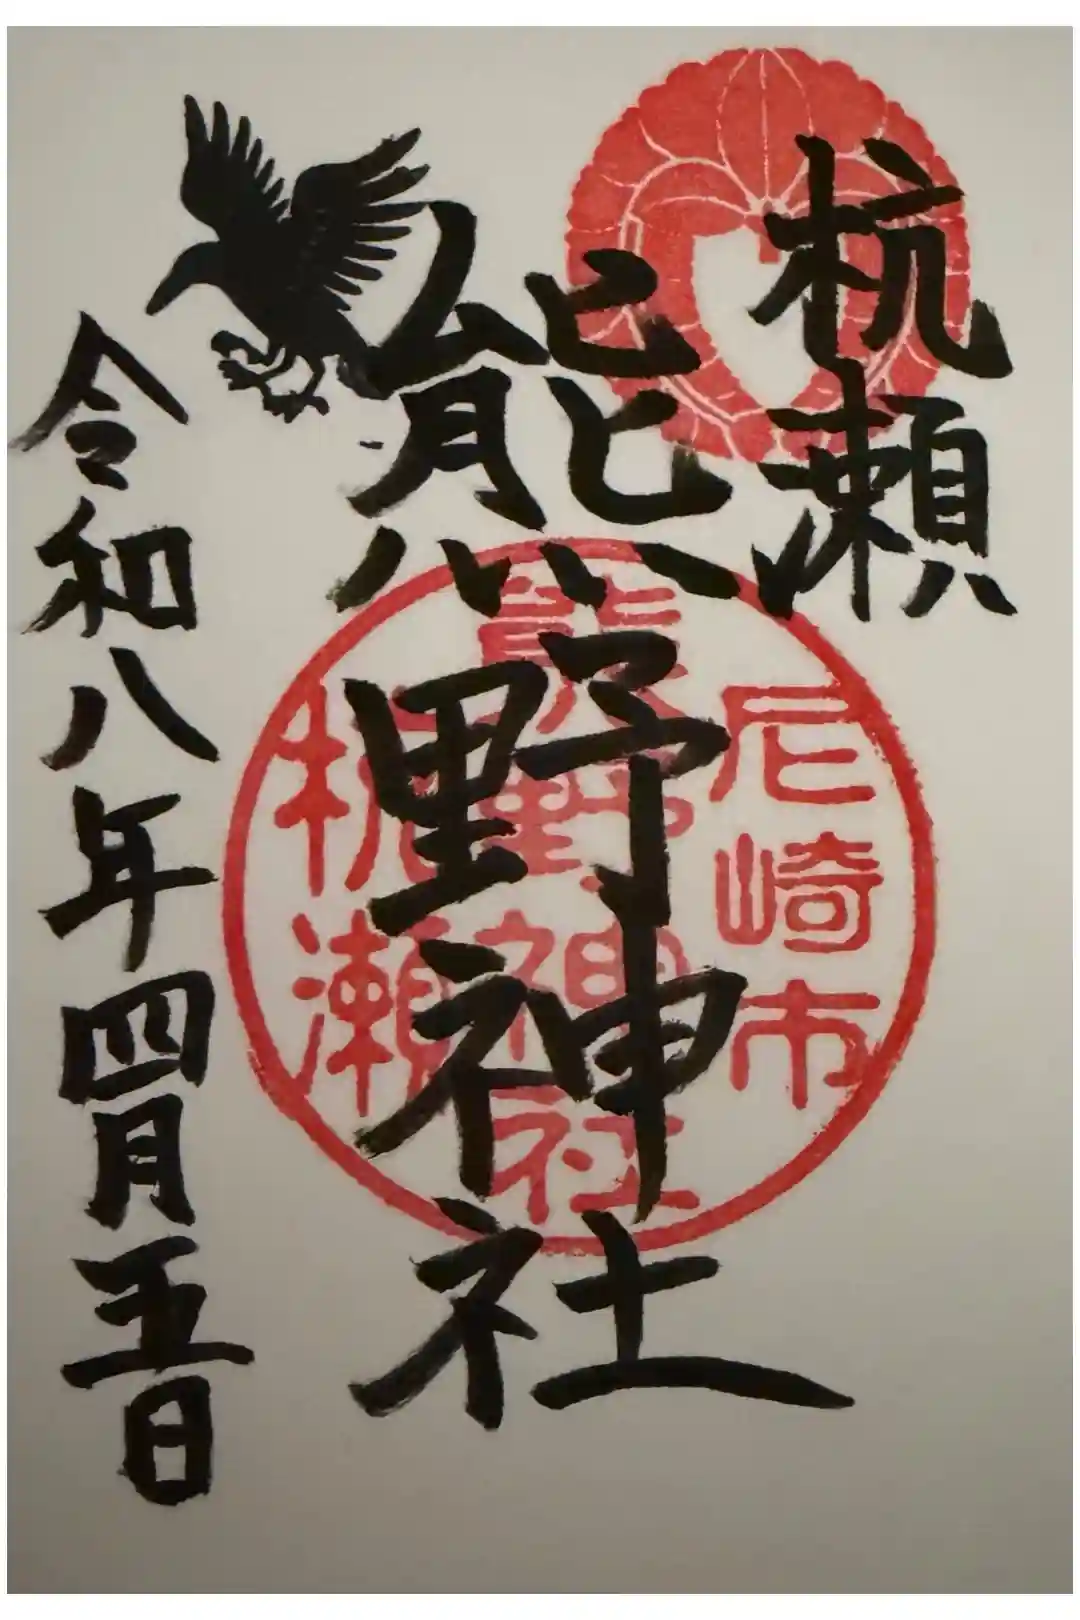 杭瀬
熊野神社
令和八年四月五日
尼崎市
熊野神社
杭瀬